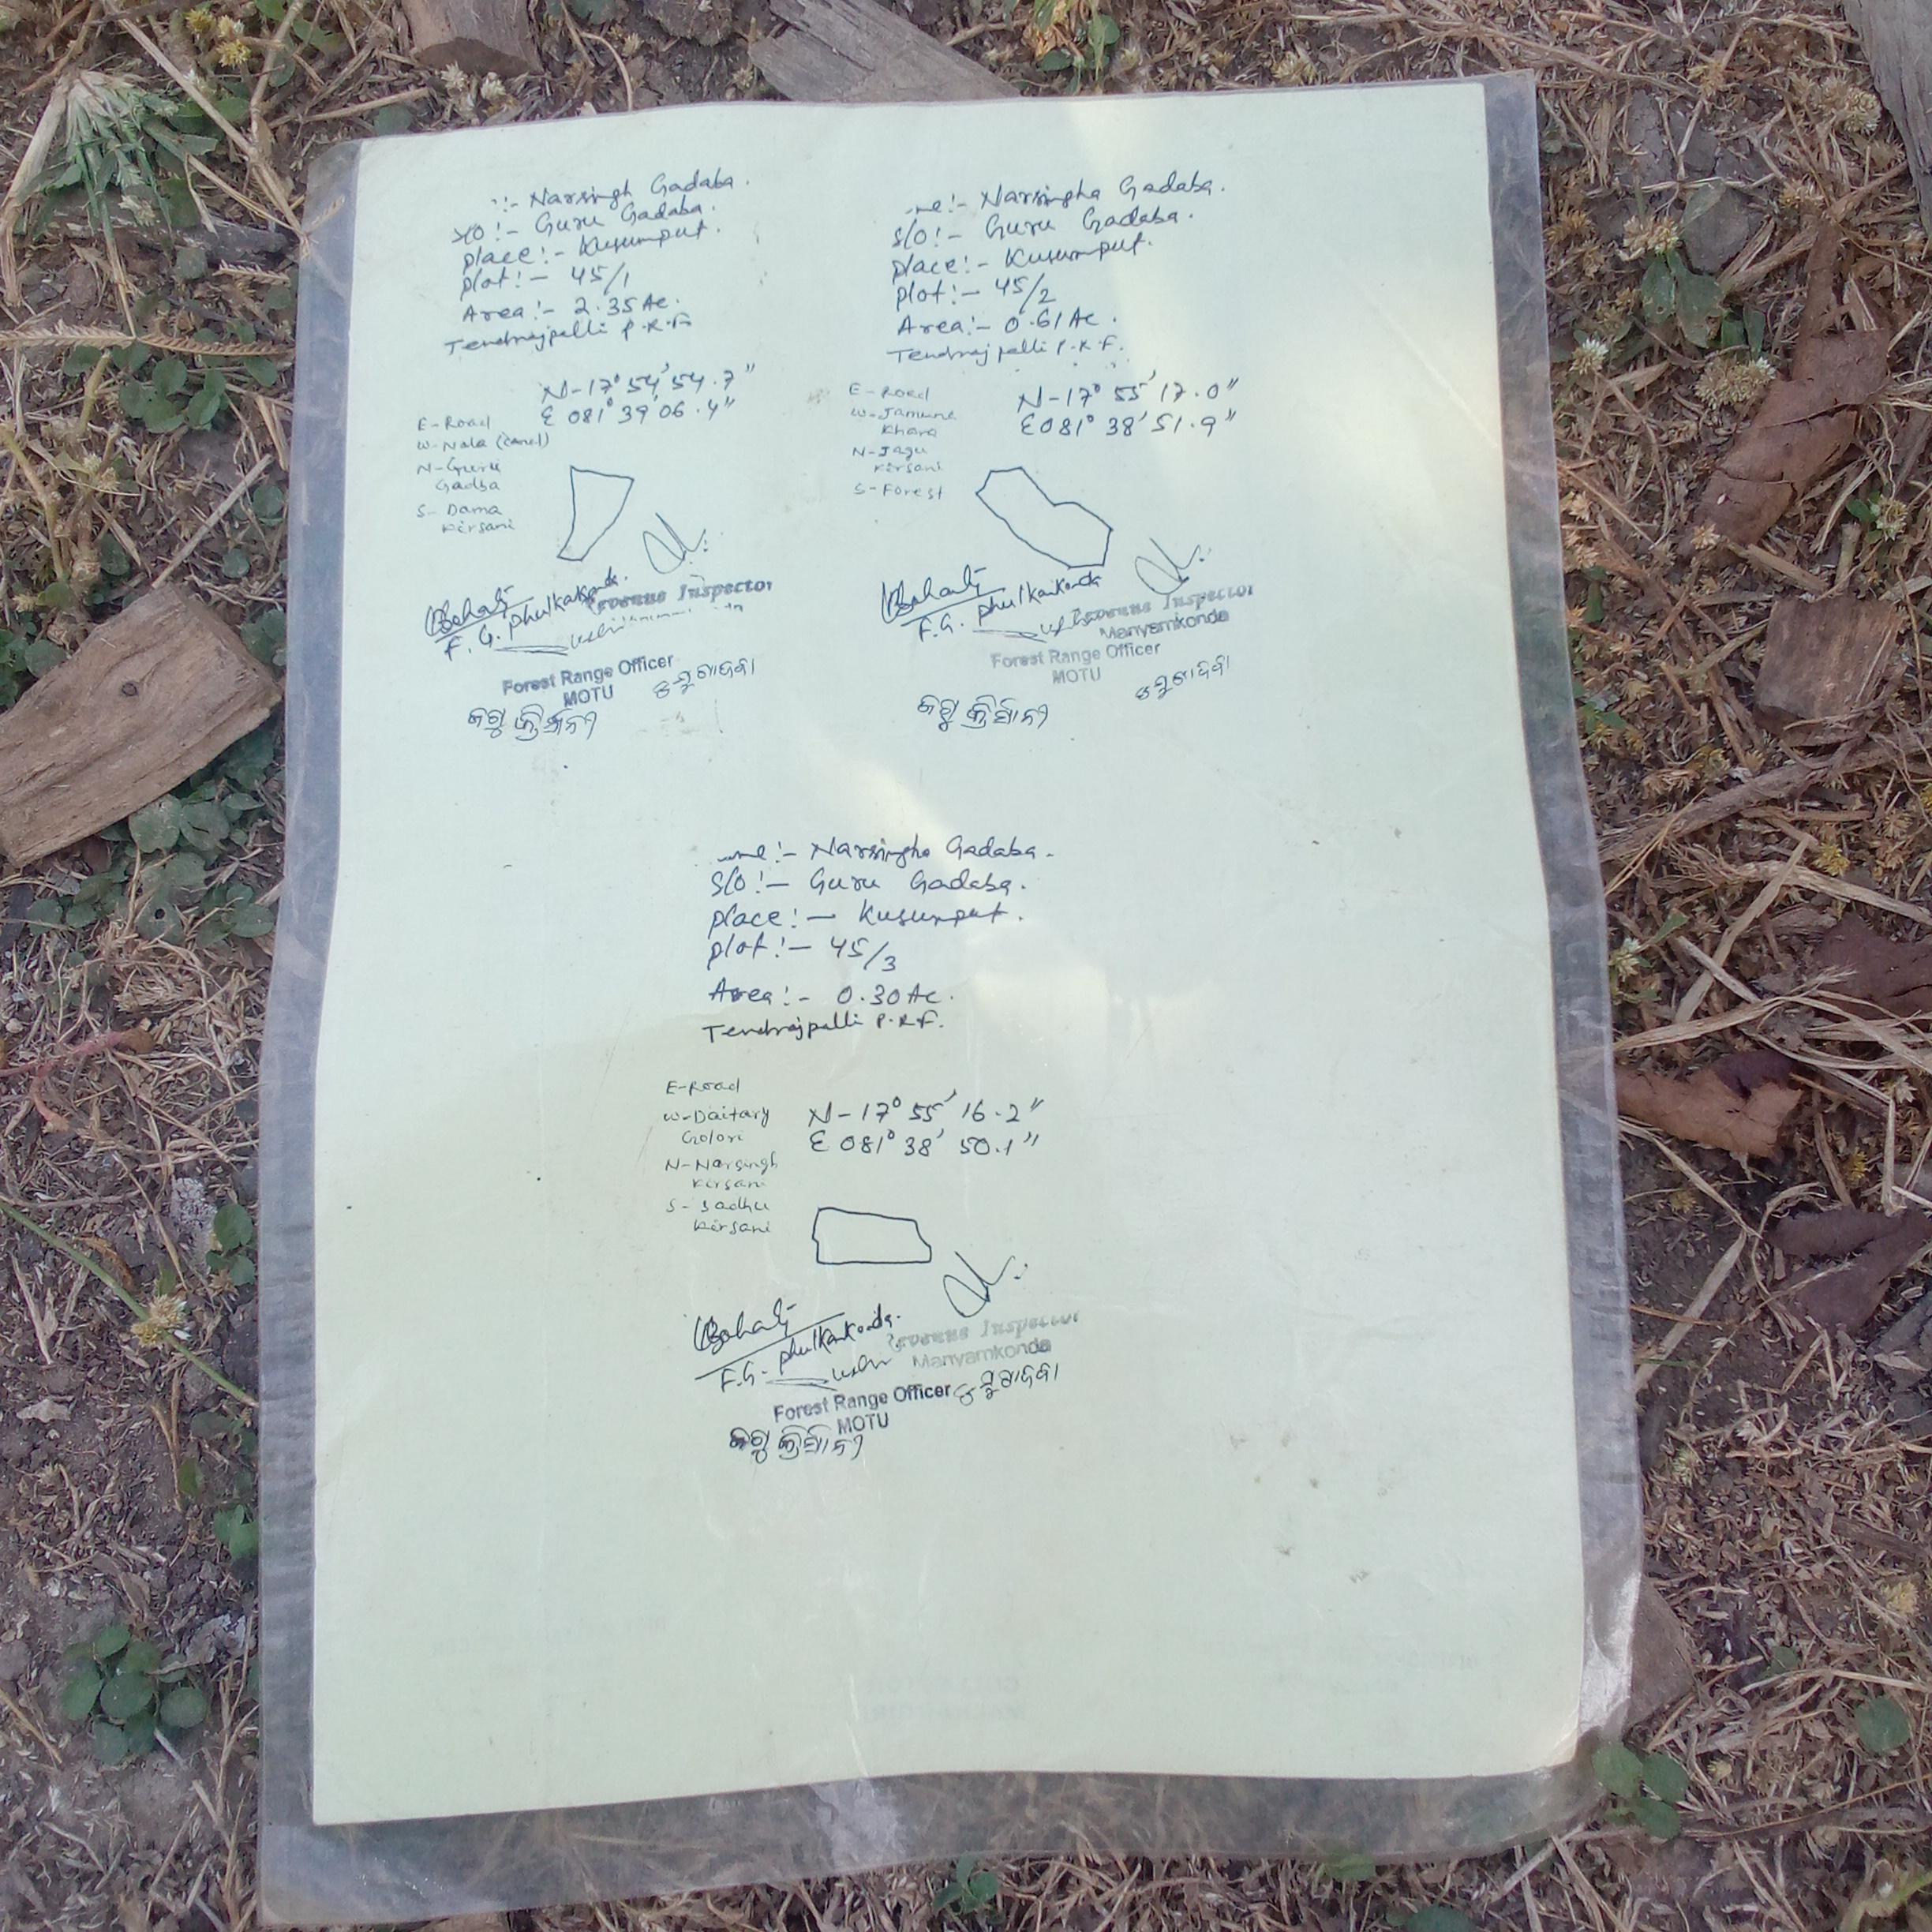 :- Narsingh Gadaba.
S/O :- Guru Gadaba.
place :- Kusumput.
plot :- 45/1
Area :- 2.35 Ac.
Tendrajpalli P.R.F
N-17° 54' 54.7"
E 081° 39' 06.4"
E-Road
W-Nala (canel)
N-Guru
Gadba
S- Dama
Kirsani
F.G. phulkankonda.
Revenue Inspector
Forest Range Officer
MOTU
ଜଗୁ କିର୍ସାନୀ
me :- Narsingha Gadaba.
S/O :- Guru Gadaba.
place :- Kusumput.
plot :- 45/2
Area :- 0.61 Ac.
Tendrajpalli P.R.F.
E-Road
W-Jamuna
Khara
N-Jagu
Kirsani
S-Forest
N-17° 55' 17.0"
E 081° 38' 51.9"
F.G. phulkankonda
Revenue Inspector
Manyamkonda
Forest Range Officer
MOTU
ଜଗୁ କିର୍ସାନୀ
me :- Narsingha Gadaba.
S/O :- Guru Gadaba.
place :- Kusumput.
plot :- 45/3
Area :- 0.30 Ac.
Tendrajpalli P.R.F.
E-Road
W-Daitary
Golori
N-Narsingh
Kirsani
S- Sadhu
Kirsani
N-17° 55' 16.2"
E 081° 38' 50.1"
F.G. phulkankonda.
Revenue Inspector
Manyamkonda
Forest Range Officer
MOTU
ଜଗୁ କିର୍ସାନୀ